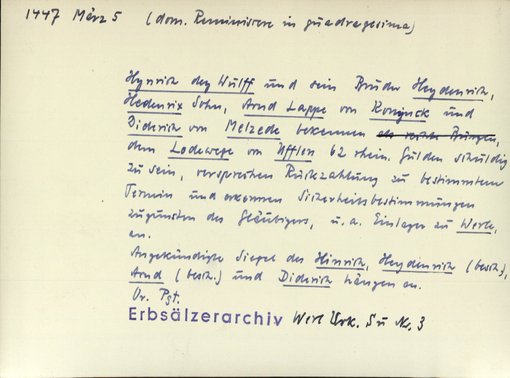 1447 März 5 (dom. Reminiscere in quadragesima)
Hynrick dey Wulff und sein Bruder Heydenrich,
Hedenrix Sohn, Arnd Lappe von Konynck und
Diderich von Melzede bekennen als rechte Bürgen,
dem Lodewege von Ufflen 62 rhein. Gulden schuldig
zu sein, versprechen Rückzahlung zu bestimmtem
Termin und erkennen Sicherheitsbestimmungen
zugunsten des Gläubigers, u.a. Einlager zu Werle,
an.
Angekündigte Siegel des Hinrich, Heydenrich (besch.),
Arnd (besch.) und Diderich hängen an.
Or. Pgt.
Erbsälzerarchiv Werl Urk. Su Nr. 3